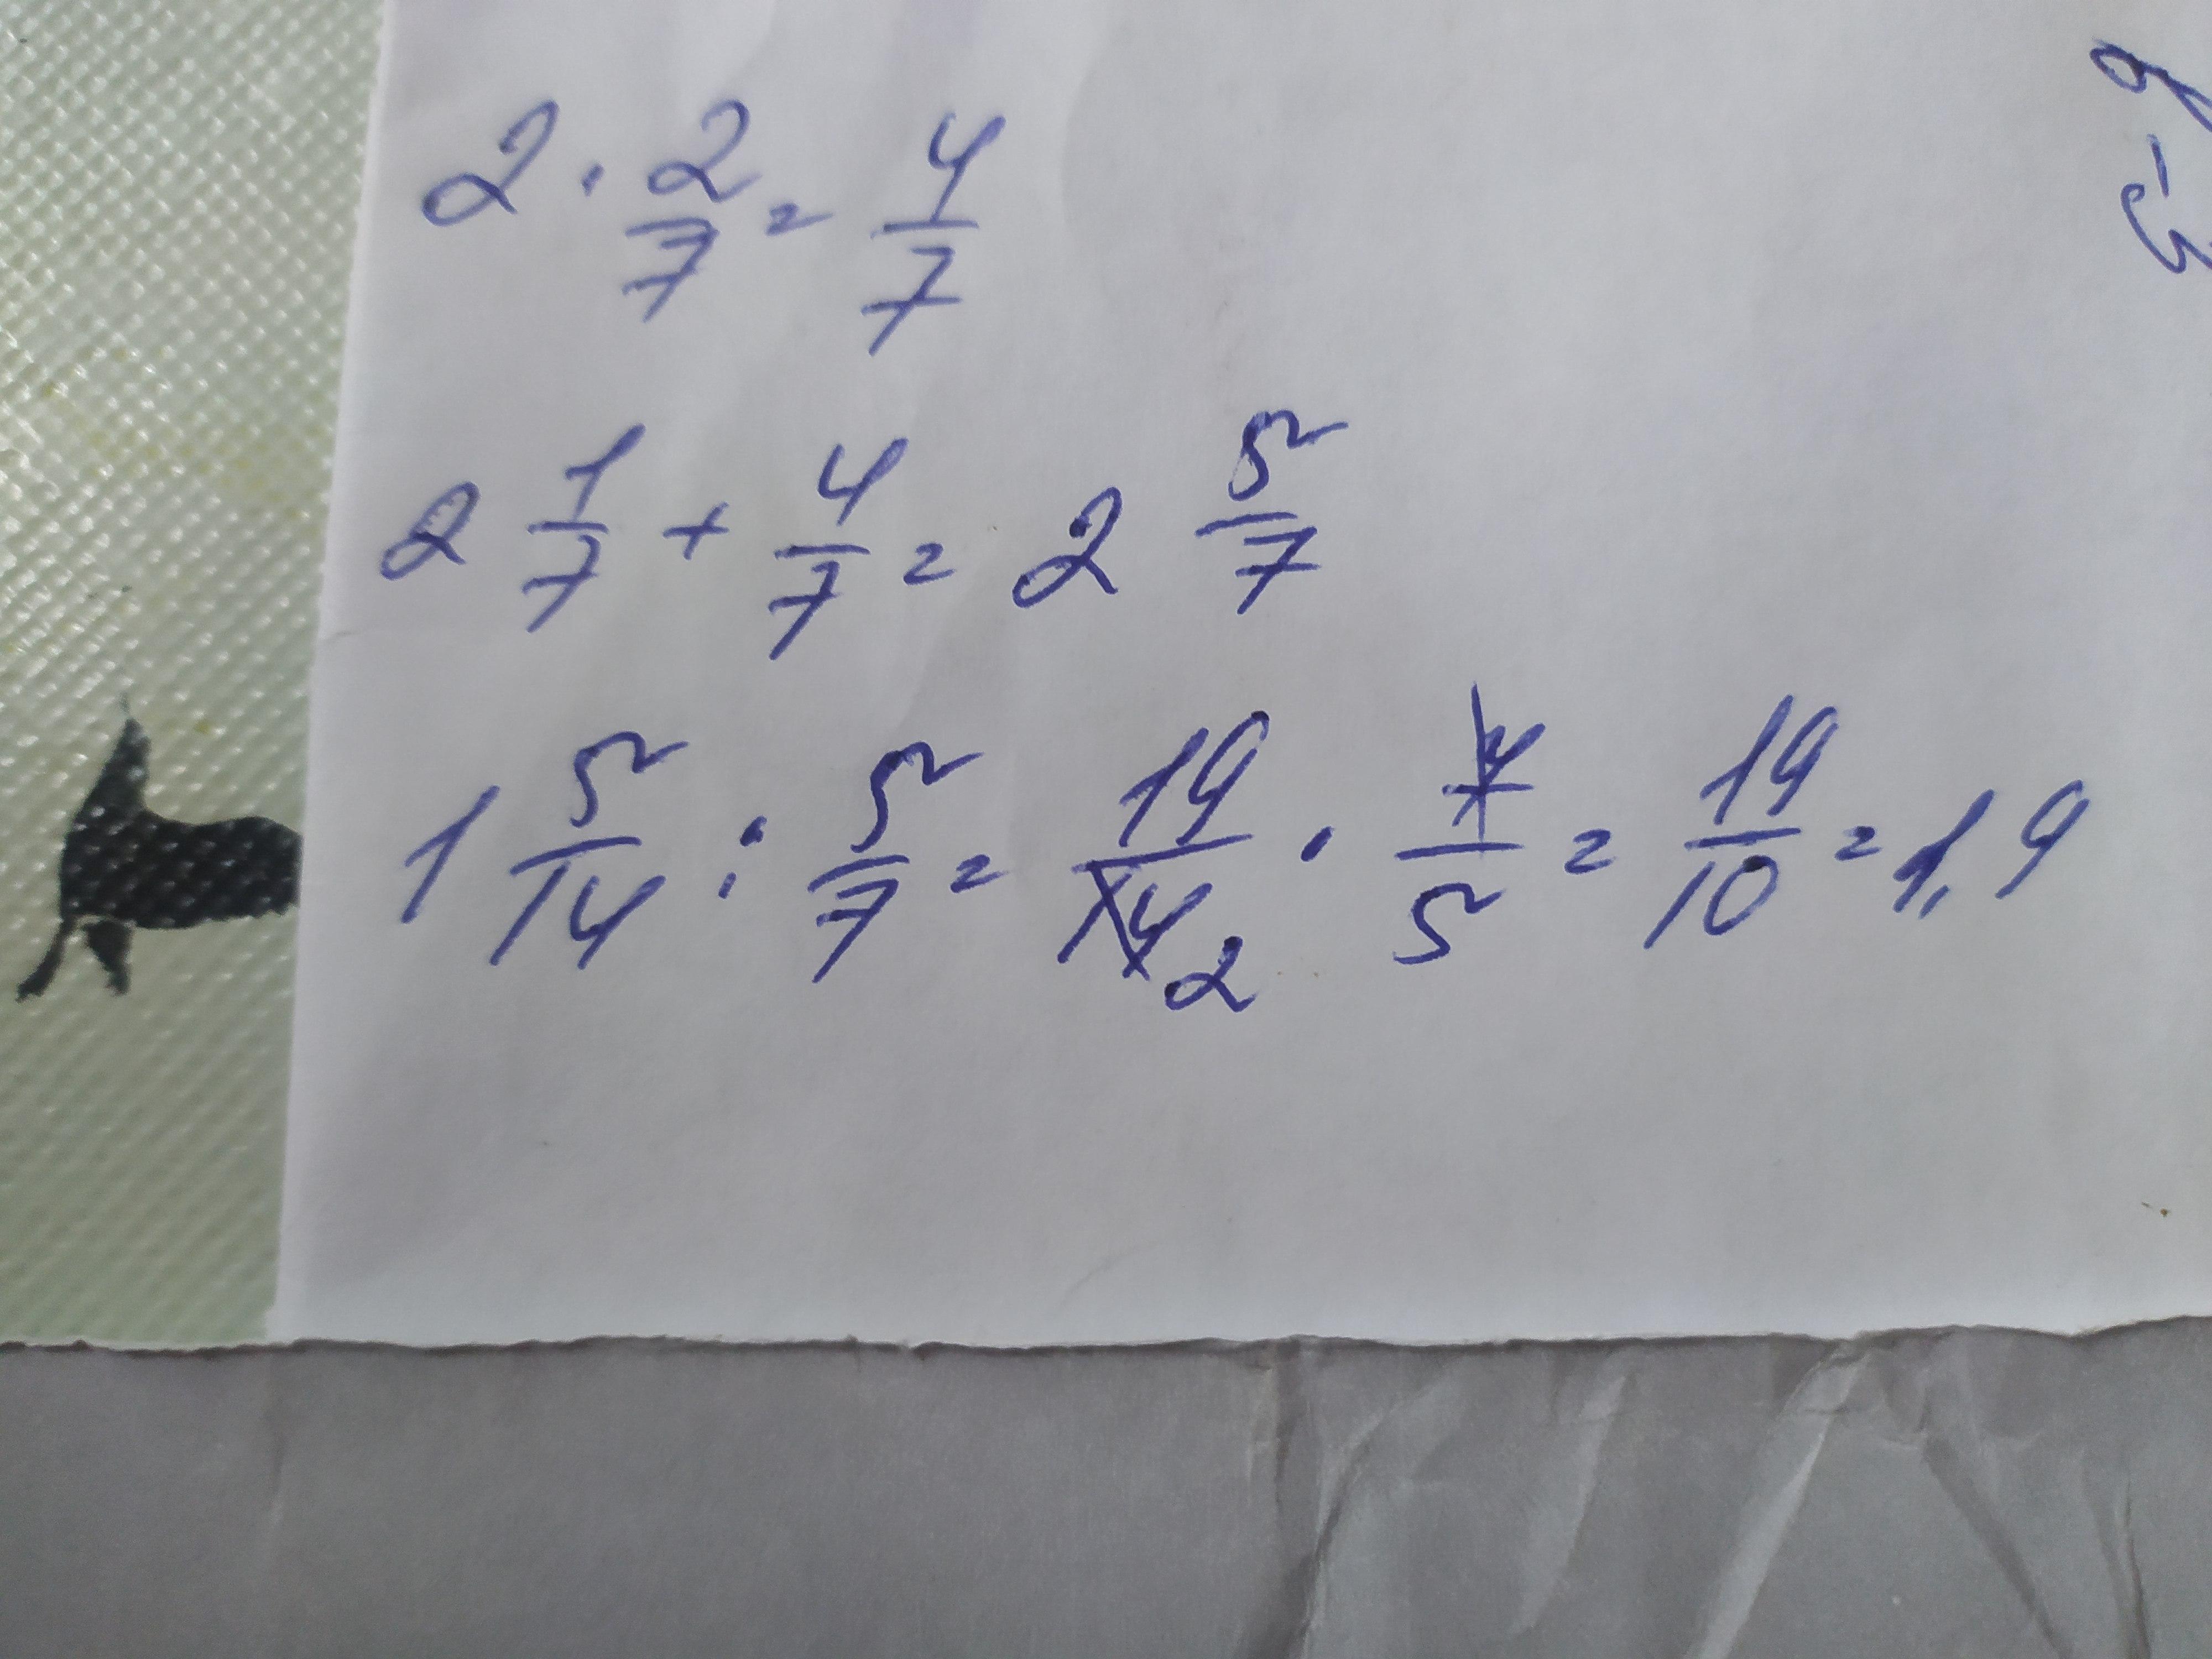 2 · 2/7 = 4/7
2 1/7 + 4/7 = 2 5/7
1 5/14 : 5/7 = 19/14 2 · 7/5 = 19/10 = 1,9